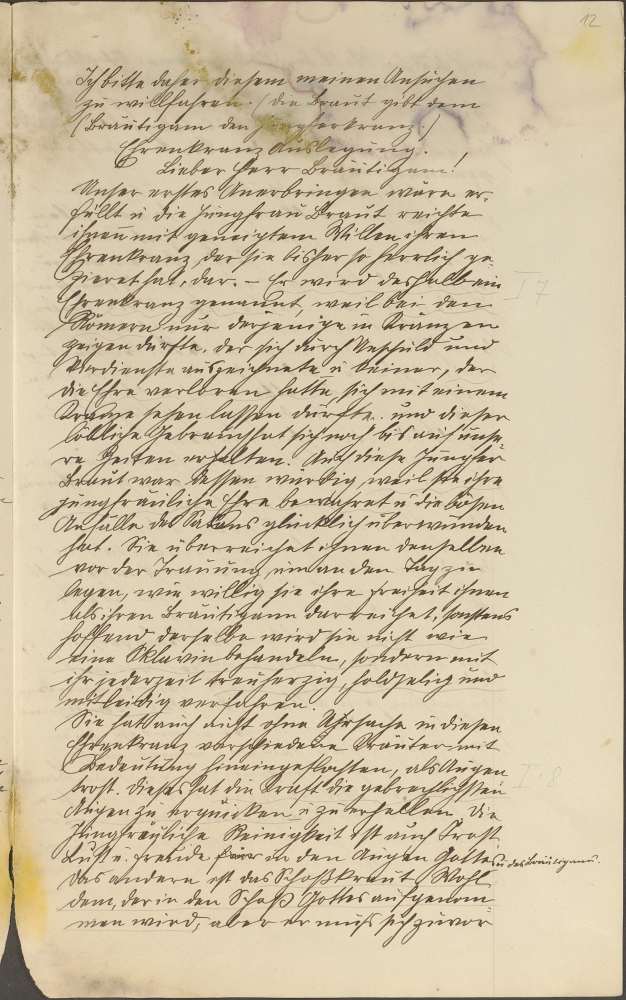 12
Ich bitte daher diesem meinen Ansuchen
zu willfahren. / die Braut gibt dem
/ Bräutigam den Jungferkranz. /
Ehrenkranz Auslegung.
Lieber Herr Bräutigam!
Unser erstes Anerbringen wäre er-
füllt u die Jungfrau Braut reichte
ihnen mit geneigtem Willen ihren
Ehrenkranz der sie bisher so herrlich ge
zieret hat, dar. – Er wird deshalb ein
Ehrenkranz genannt, weil bei den
I 7
Römern nur derjenige in Kränzen
zeigen durfte, der sich durch Unschuld und
Verdienste auszeichnete u keiner, der
die Ehre verloren hatte, sich mit einem
Kranze sehen lassen durfte. und dieser
löbliche Gebrauch hat sich noch bis auf unse
re Zeiten erhalten. Auch diese Jungfer
Braut war dessen würdig, weil sie ihre
jungfräuliche Ehre bewahret u die bösen
Anfälle des Satans glücklich überwunden
hat. Sie überreichet ihnen denselben
vor der Trauung, um an den Tag zu
legen, wie willig sie ihre Freiheit ihnen
als ihren Bräutigam darreichet,
hoffend derselbe wird sie nicht wie
eine Sklavin behandeln, sondern mit
ihr jederzeit treuherzig, holdselig und
mitleidig verfahren.
Sie hat auch nicht ohne Uhrsache in diesen
Ehrenkranz verschiedene Kräuter mit
Bedeutung hineingeflochten, als Augen
I. 8
trost. Dieses hat die Kraft die gebrechlichsten
Augen zu erquicken u zu erhellen. Die
Jungfräuliche Reinigkeit ist auch Trost
Lust u Freude in den Augen Gottes u des Bräutigams.
Das andere ist das Schoßkraut. Wohl
dem, der in den Schoß Gottes aufgenom
men wird, aber er muß sich zuvor